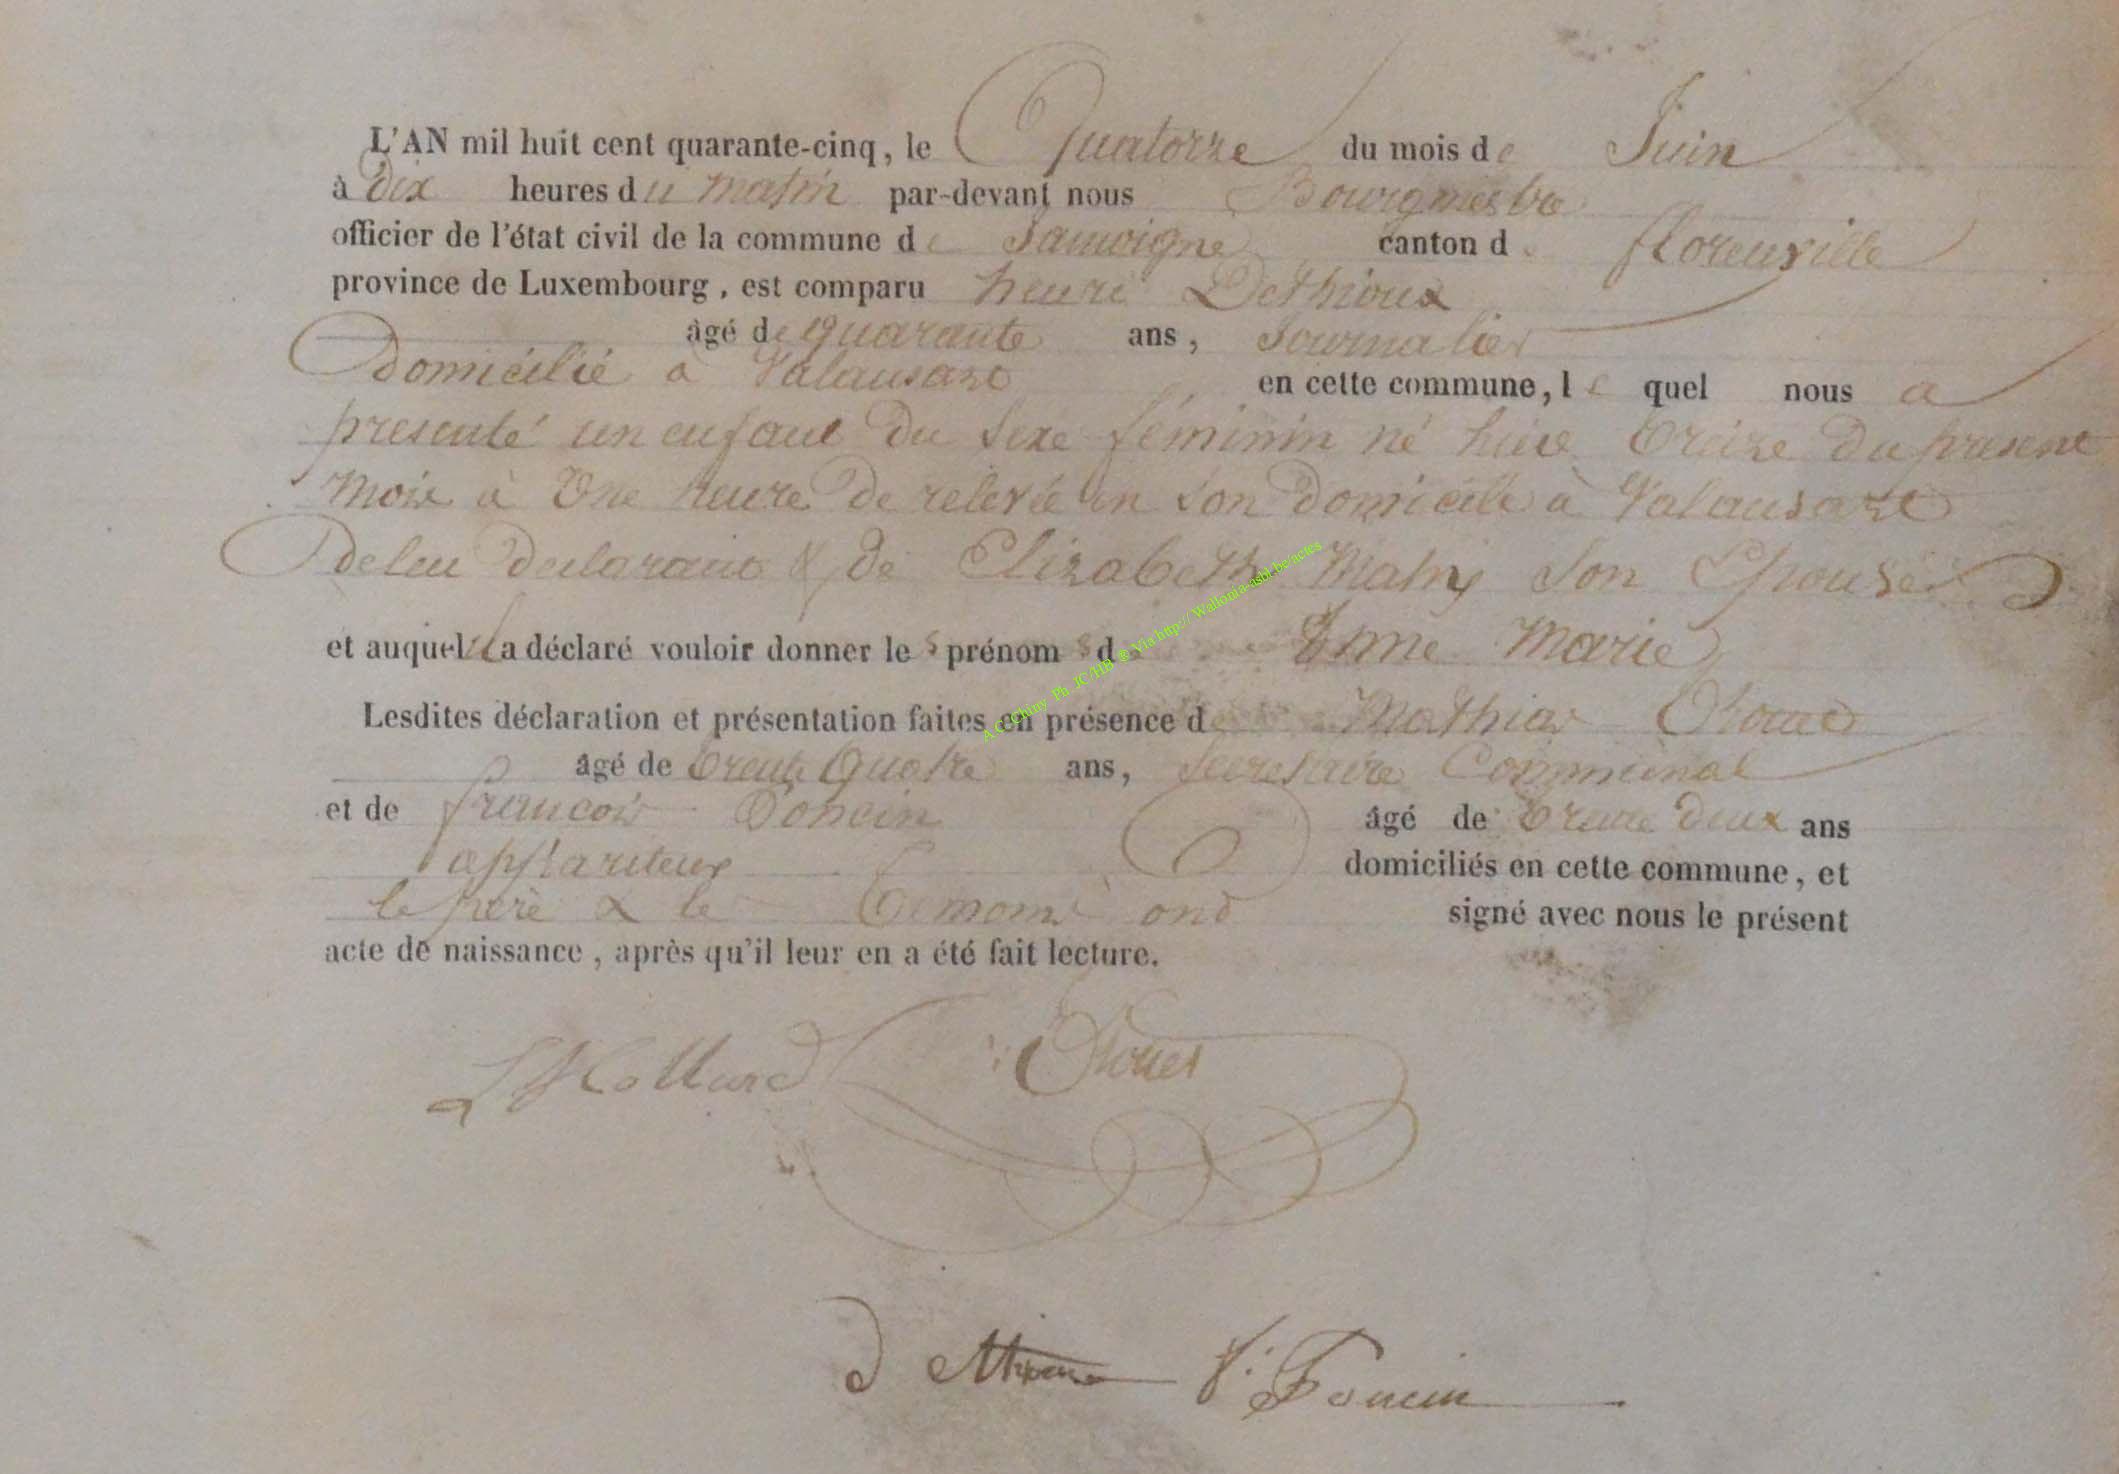 L'AN mil huit cent quarante-cinq, le Quatorze du mois de Juin
à Dix heures du matin par-devant nous Bourgmestre
officier de l'état civil de la commune de Jamoigne canton de florenville
province de Luxembourg, est comparu henri Dethioux
âgé de quarante ans, Journalier
Domicilié à Valansart en cette commune, le quel nous a
presenté un enfant du sexe féminin né hier treize du present
mois à Une heure de relevée en son domicile à Valansart
de lui declarant & de Elizabeth son Epouse
et auquel il a déclaré vouloir donner les prénoms d Anne Marie
Lesdites déclaration et présentation faites en présence de Mathias
âgé de trente Quatre ans, Secretaire Communal
et de francois Poncin âgé de trente deux ans
appariteur domiciliés en cette commune, et
le père & le temoins ont signé avec nous le présent
acte de naissance, après qu'il leur en a été fait lecture.
A.C. Chiny Ph. JC/HB ® Via http://Wallonia-asbl.be/actes
f. Poncin